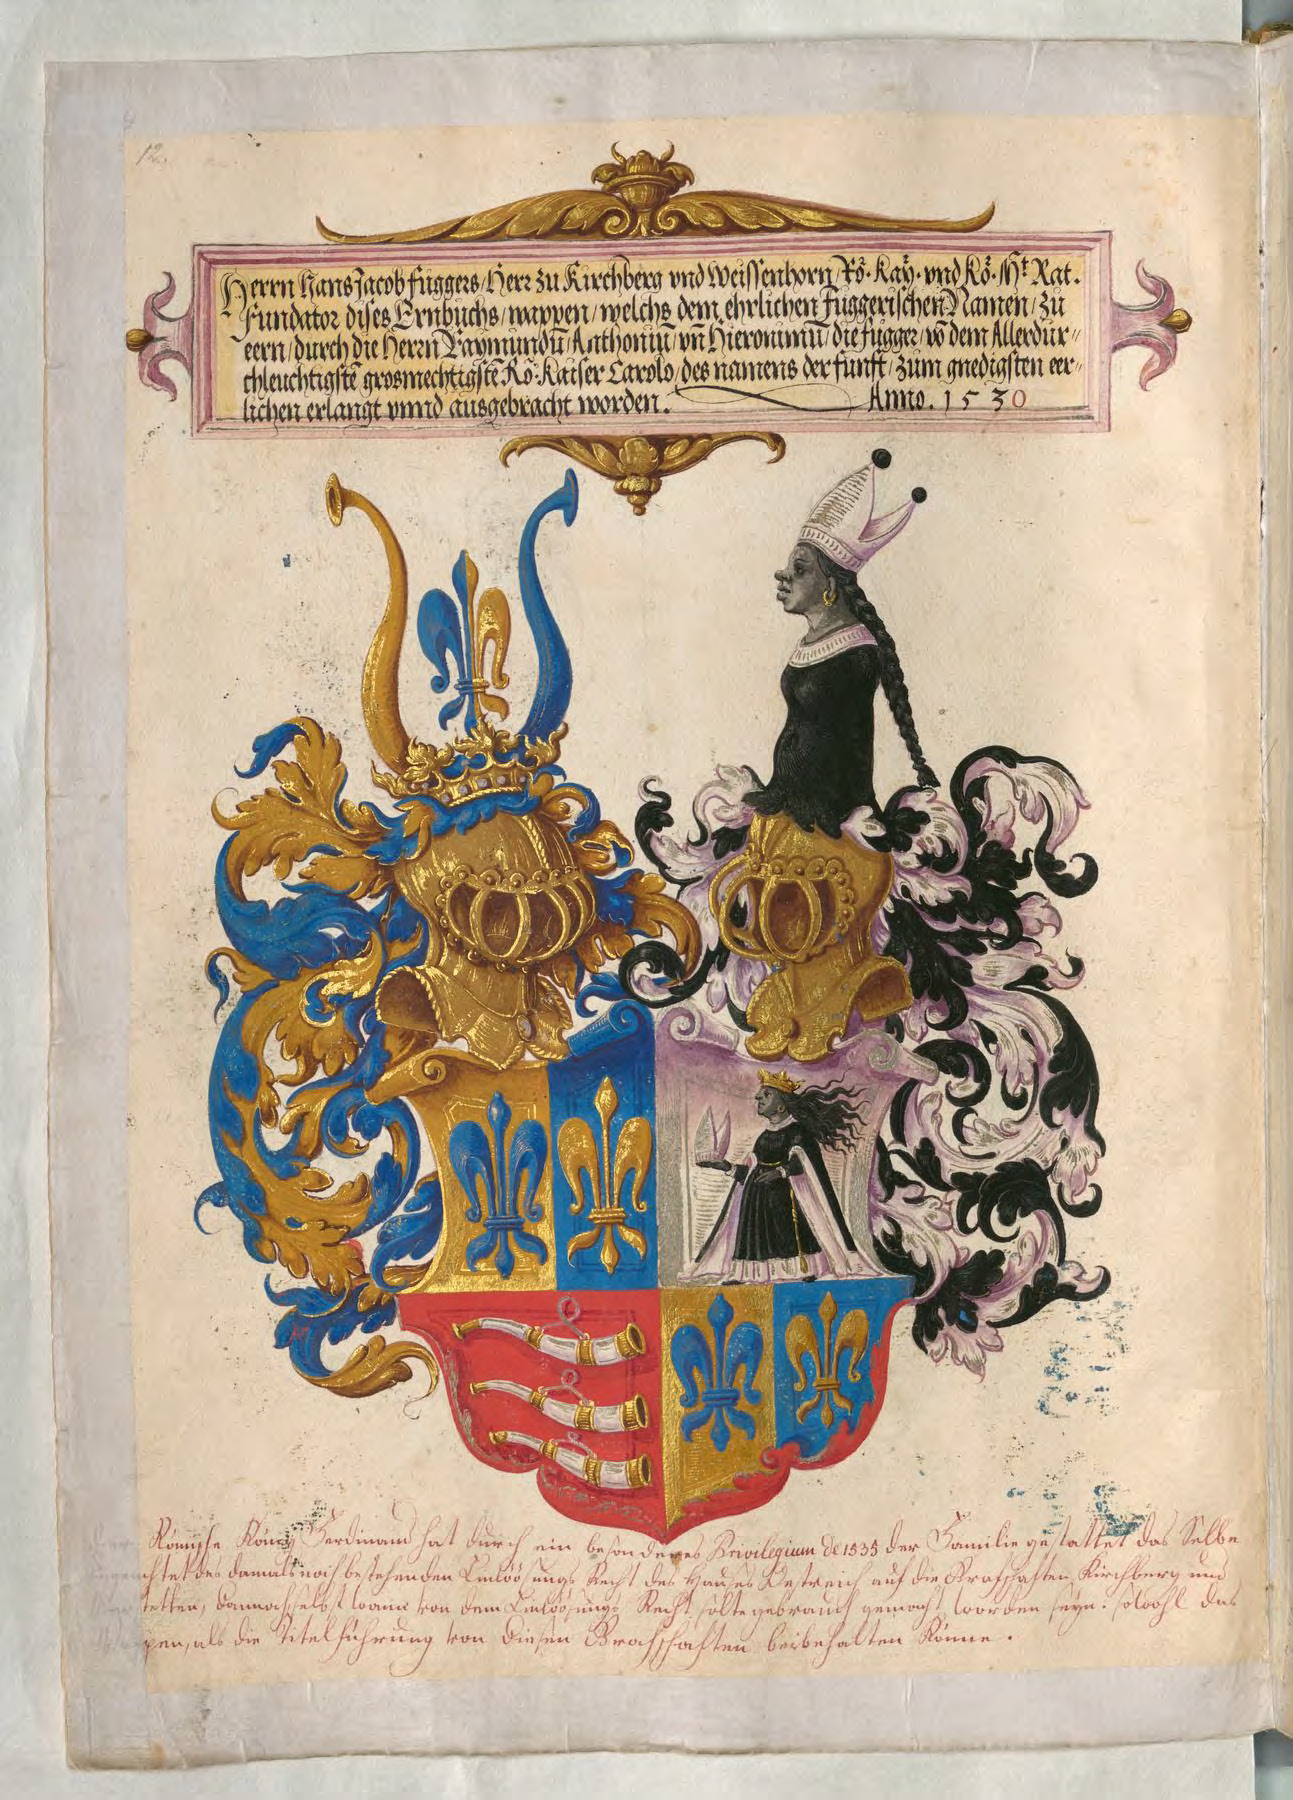 12.
Herrn Hans Jacob Fuggers / Herr zu Kirchberg vnd Weissenhorn / Rö. Kay. vnd Kö. Mt. Rat.
Fundator dises Ernbuchs / wappen / welchs dem ehrlichen Fuggerischen Namen / zu
eern / durch die Herrn Raymundū / Anthoniū / vn̄ Hieronimū / die Fugger / vō dem Allerdur=
chleuchtigstē grosmechtigstē Rö. Kaiser Carolo / des namens der funft / zum gnedigsten eer=
lichen erlangt vnnd ausgebracht worden. Anno. 1530
Römische König Ferdinand hat durch ein besonderes Privilegium de 1535 der Familie gestattet das Selbe
des damals noch bestehenden Einlöösungs Recht des Hauses Oestreich auf die Grafschaften Kirchberg und
dannoch selbst wann von dem Einlöösungs Recht solte gebrauch gemacht worden seyn. sowohl das
als die Titelführung von diesen Grafschaften beibehalten Könne.